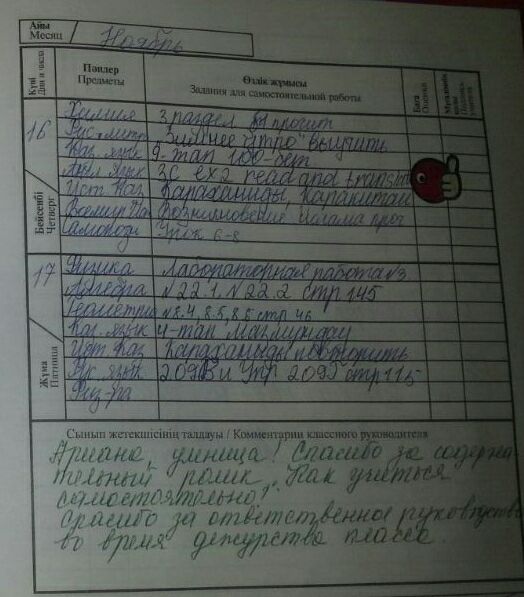 Айы
Месяц
Ноябрь
Күні
Дни и числа
Пәндер
Предметы
Өздік жұмысы
Задания для самостоятельной работы
Баға
Оценки
16
Бейсенбі
Четверг
Химия 3 раздел §1 прочит
Рус. литр "Зимнее утро" выучить
Каз. язык 9-тап 100-бет
Англ. язык 3C ex2 read and translate
Ист. Каз Караханиды, Каракитаи
Всемир Возникновение ислама проч
Самопоз. Урок 6-8
17
Жұма
Пятница
Физика Лабораторная работа №3
Алгебра №22.1, №22.2 стр 145
Геометрия №8.4, 8.5, 8.6 стр 46
Каз. язык 4-тап
Ист. Каз Караханиды повторить
Рус. язык 209В и Упр 209Б стр 115
Физ-ра
Сынып жетекшісінің талдауы / Комментарии классного руководителя
Ариана, умница! Спасибо за содержа-
тельный ролик "Как учиться
самостоятельно?"
Спасибо за ответственное руководство
во время дежурства класса.